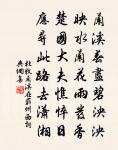 蘭溪春盡碧泱泱
映水蘭花雨發香
楚國大夫憔悴日
應尋此路去瀟湘
杜牧蘭溪在蘄州西詞
典網書